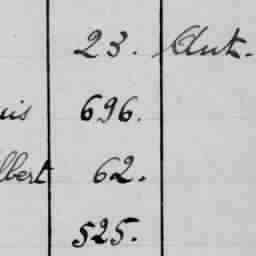 23. Aut.
uis 696.
lbert 62.
525.